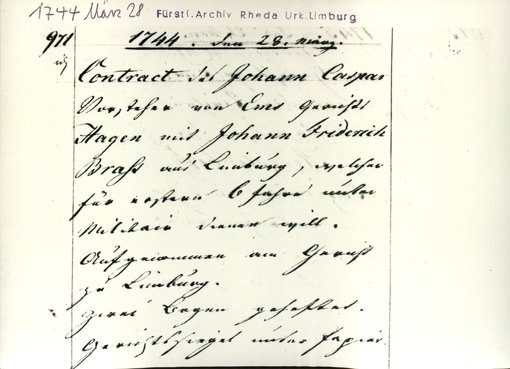 1744 März 28 Fürstl. Archiv Rheda Urk. Limburg
971
1744. den 28. März.
Contract des Johann Caspar
Vorsteher von Ems Gerichts
Hagen mit Johann Friderich
Brass aus Limburg, welcher
für erstern 6 Jahre unter
Militair dienen will.
Aufgenommen am Gericht
zu Limburg.
zwei Bogen geheftet.
Gerichtssiegel unter Papier.